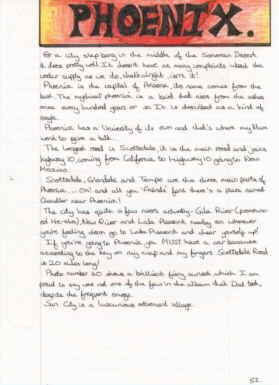 PHOENIX.
For a city slap bang in the middle of the Sonoran Desert
it does pretty well. It doesn't have as many complaints about the
water supply as we do, that's alright, isn't it!
Phoenix is the capital of Arizona, its name comes from the
bird. The mythical phoenix is a bird that rises from the ashes
once every hundred years or so. It is described as a kind of
eagle.
Phoenix has a University of its own and that's where my Mum
went to give a talk.
The longest road is Scottsdale, it is the main road and joins
highway 10 coming from California to Highway 10 going to New
Mexico.
Scottsdale, Glendale and Tempe are the three main parts of
Phoenix. Oh! and all you 'Friends' fans there's a place named
Chandler near Phoenix!
The city has quite a few rivers actually - Gila River (pronounced
Hee-la), New River and Lake Pleasant nearby so whenever
you're feeling down go to Lake Pleasant and cheer yourself up!
If you're going to Phoenix you MUST have a car because
according to the key on my map and my fingers Scottsdale Road
is 20 miles long!
Photo number 20 shows a brilliant fiery sunset which I am
proud to say was not one of the few in the album that Dad took,
despite the frequent
Sun City is a luxurious retirement village.